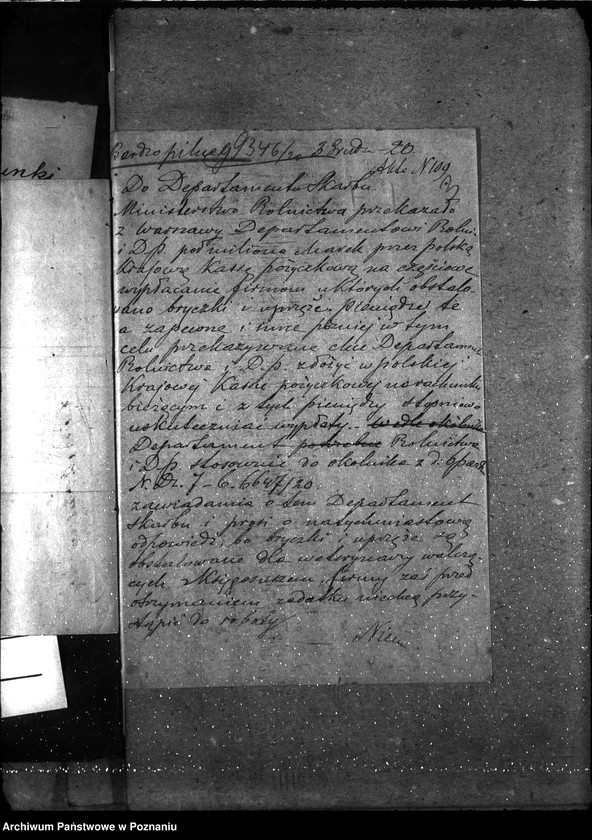 unki
Bardzo pilne 99346/20 3 Grudn - 20
Akta N 109
Do Departamentu Skarbu.
Ministerstwo Rolnictwa przekazało
z Warszawy Departamentowi Rolni.
i D.p. pół miliona Marek przez polską
Krajową Kassę pożyczkową na częściowe
wypłacanie firmom u których obstalo
wano bryczki i uprzęże. Pieniądze te
a zapewne i inne później w tym
celu przekazywane chce Departament
Rolnictwa i D.p. złożyć w polskiej
Krajowej Kasie pożyczkowej na rachunku
bieżącym i z tych pieniędzy stopniowo
uskuteczniać wypłaty. - Wedle okólnika
Departament Rolnictwa
i D.p. stosownie do okólnika z d. 6 paźd
N. Dz. 7-6.6647/20
zawiadamia o tem Departament
Skarbu i prosi o natychmiastową
odpowiedź, bo bryczki i uprzęże są
obstalowane dla weterynarzy walczą-
cych z księgosuszem, firmy zaś przed
otrzymaniem zadatku niechcą przy-
stąpić do roboty
Archiwum Państwowe w Poznaniu